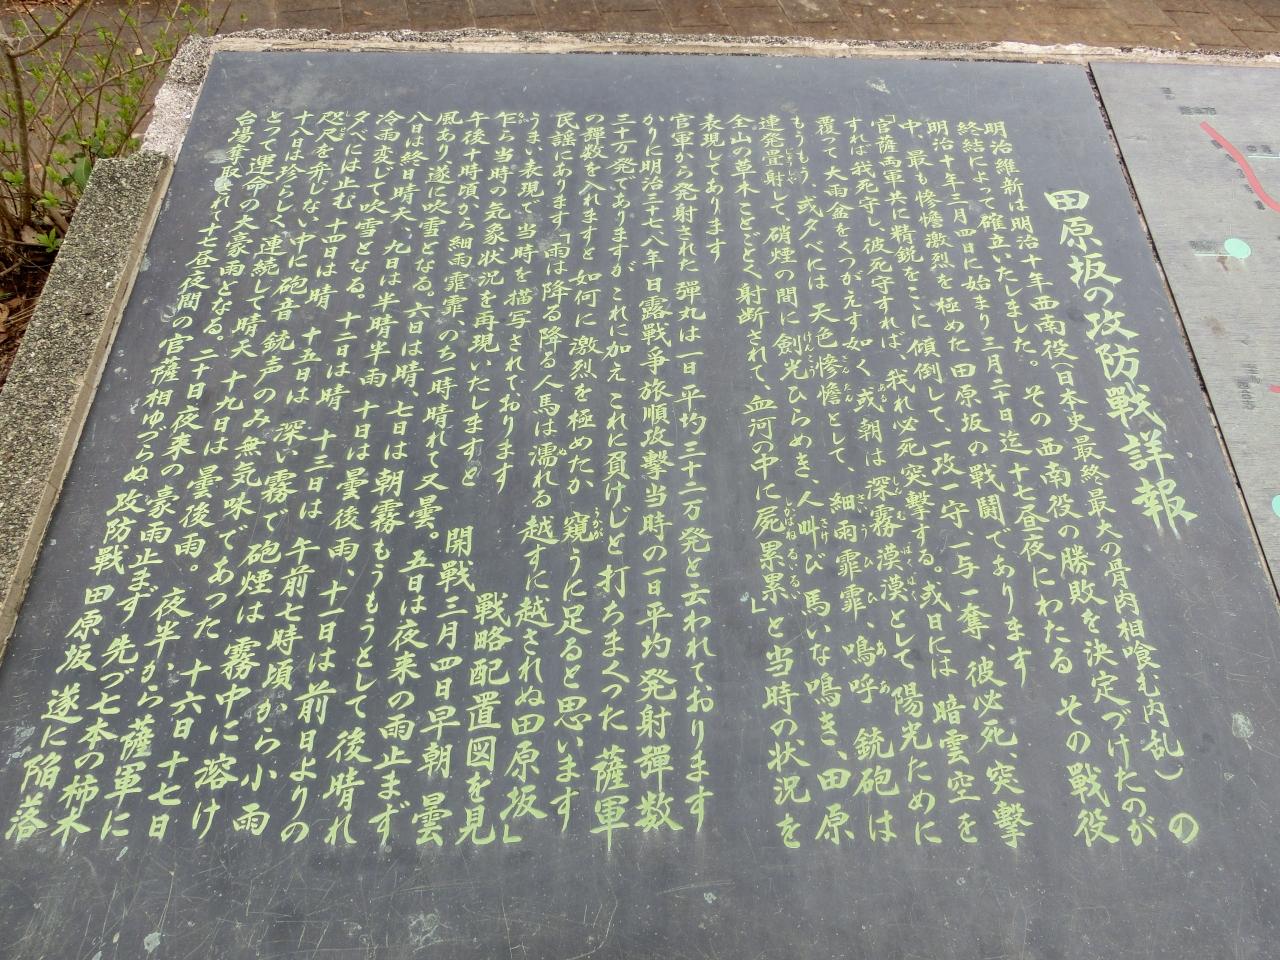 田原坂の攻防戰詳報
明治維新は明治十年西南役(日本史最終最大の骨肉相喰む内乱)の
終結によって確立いたしました。その西南役の勝敗を決定づけたのが
明治十年三月四日に始まり三月二十日迄十七昼夜にわたる その戰役
中、最も惨憺激烈を極めた田原坂の戰闘であります
「官薩両軍共に精鋭をここに傾倒して、一攻一守、一与一奪、彼必死、突撃
すれば我死守し、彼死守すれば、我れ必死突撃する。或日には暗雲空を
覆って大雨盆をくつがえす如く、或朝は深霧漠漠として陽光ために
もうもう、或夕べには天色惨憺として、細雨霏霏、鳴呼銃砲は
連発畳射して、硝煙の間に劍光ひらめき、人叫び馬いな鳴き、田原
全山の草木ことごとく射断されて、血河の中に屍累累」と当時の状況を
表現してあります
官軍から発射された彈丸は一日平均三十二万発と云われております
かりに明治三十七、八年日露戰爭旅順攻撃当時の一日平均発射彈数
三十万発でありますが これに加え これに負けじと打ちまくった薩軍
の彈数を入れますと如何に激烈を極めたか窺うに足ると思います
民謡にあります「雨は降る降る人馬は濡れる越すに越されぬ田原坂」
うまい表現で当時を描写されております
戦略配置図を見
乍ら当時の気象状況を再現いたしますと
開戰三月四日早朝曇
午後十時頃から細雨霏霏、のち一時晴れて又曇。五日は夜来の雨止まず
風あり遂に吹雪となる。六日は晴、七日は朝霧もうもうとして後晴れ
八日は終日晴天、九日は半晴半雨 十日は曇後雨、十一日は前日よりの
冷雨変じて吹雪となる。十二日は晴 十三日は午前七時頃から小雨
夕べには止む 十四日は晴 十五日は深い霧で砲煙は霧中に溶け
咫尺を弁じない中に砲音銃声のみ無気味であった 十六日十七日
十八日は珍らしく連続して晴天 十九日は曇後雨。夜半から薩軍に
とって運命の大豪雨となる。二十日夜来の豪雨止まず 先づ七本の柿木
台場奪取されて十七昼夜間の官薩相ゆづらぬ攻防戰 田原坂 遂に陥落